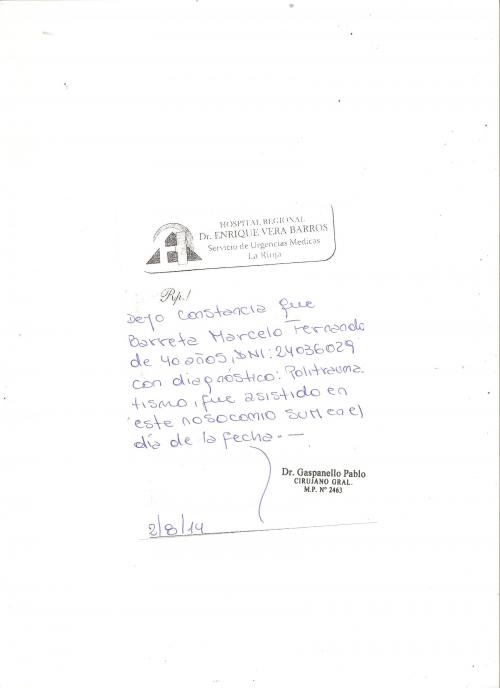 HOSPITAL REGIONAL
Dr. ENRIQUE VERA BARROS
Servicio de Urgencias Medicas
La Rioja
Rp./
Dejo constancia que
Barreta Marcelo Fernando
de 40 años, DNI: 24036029
con diagnóstico: Politrauma
tismo, fue asistido en
este nosocomio SUM en el
día de la fecha.-
Dr. Gaspanello Pablo
CIRUJANO GRAL.
M.P. Nº 2463
2/8/14